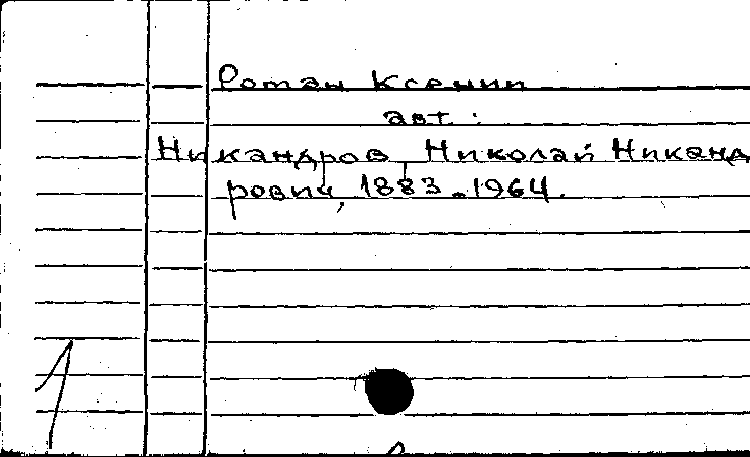 Ротан Ксении
авт.:
Никандров, Николай Никанд
рович, 1883-1964.
1